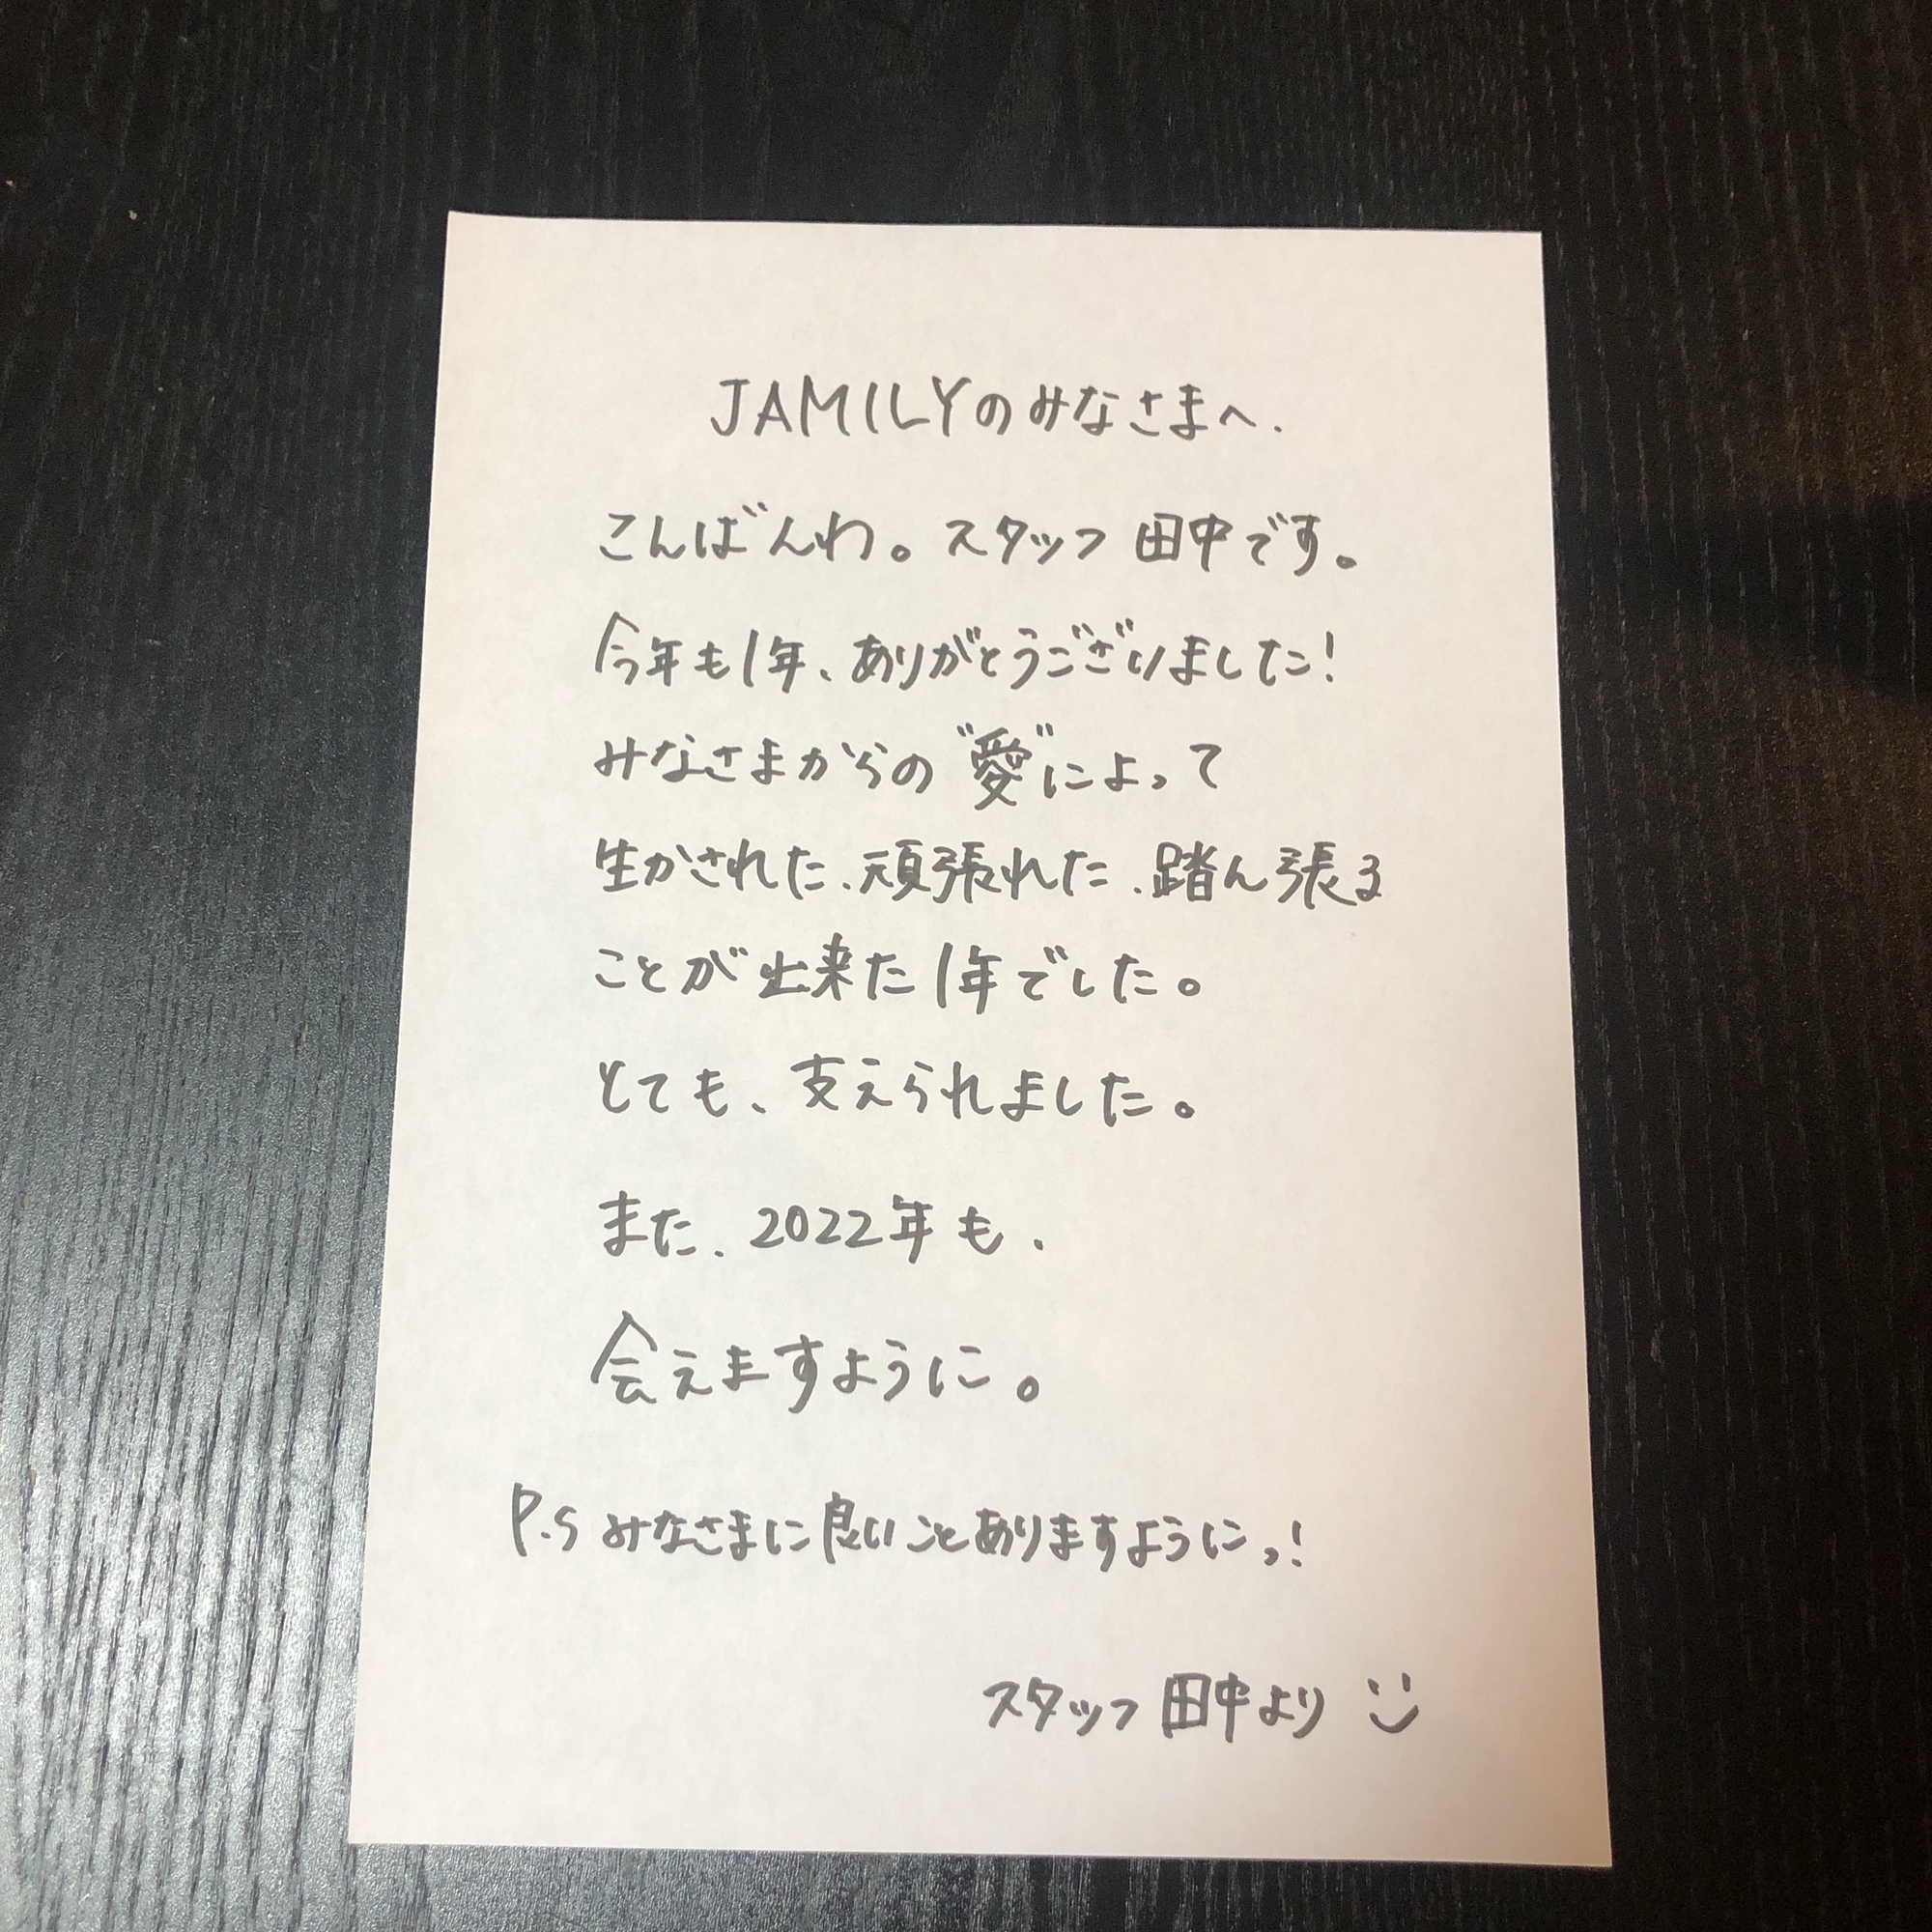 JAMILYのみなさまへ.
こんばんわ。スタッフ田中です。
今年も1年、ありがとうございました!
みなさまからの"愛"によって
生かされた、頑張れた、踏ん張る
ことが出来た1年でした。
とても、支えられました。
また、2022年も、
会えますように。
P.S みなさまに良いことありますようにっ!
スタッフ田中より